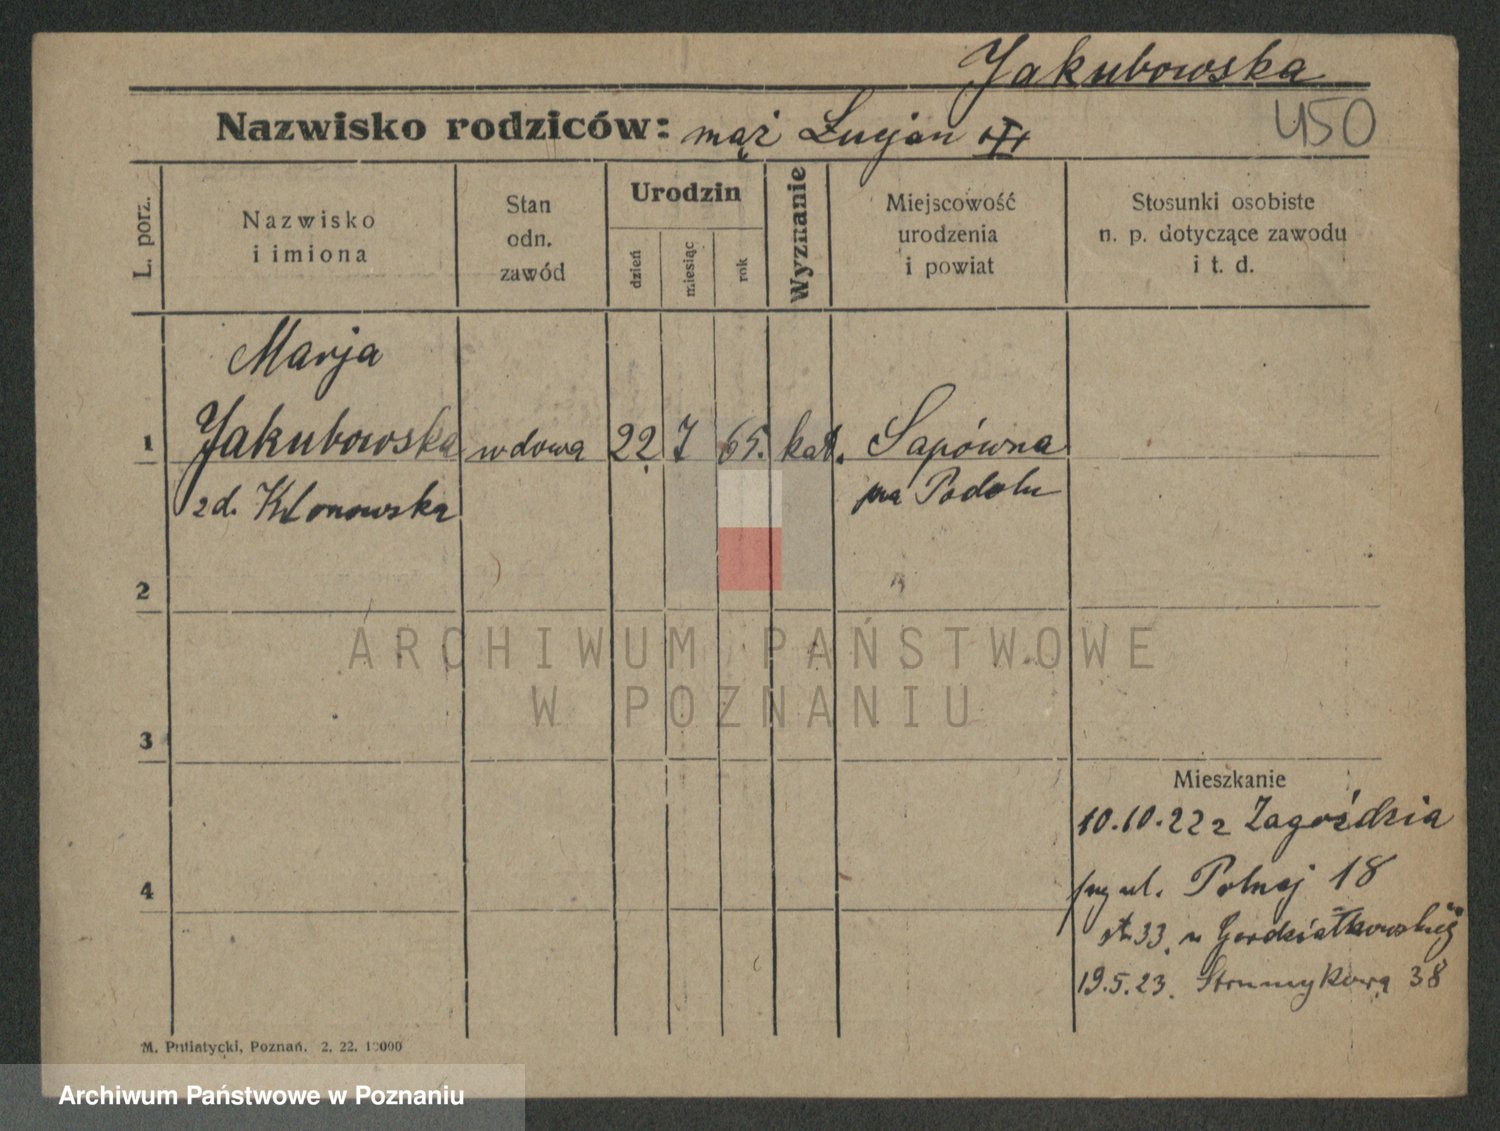 Jakubowska
450
Nazwisko rodziców: mąż Lucjan
L. porz.
Nazwisko
i imiona
Stan
odn.
zawód
Urodzin
dzień
miesiąc
rok
Wyznanie
Miejscowość
urodzenia
i powiat
Stosunki osobiste
n. p. dotyczące zawodu
i t. d.
Marja
1 Jakubowska wdowa 22 7 65. kat. Sapówna
zd. Klonowska na Podolu
2
ARCHIWUM PAŃSTWOWE
W POZNANIU
3
Mieszkanie
10.10.22 z Zagoździa
4
ul. Polnej 18
19.5.23. Strumykowa 38
M. Putiatycki, Poznań. 2. 22. 10000
Archiwum Państwowe w Poznaniu